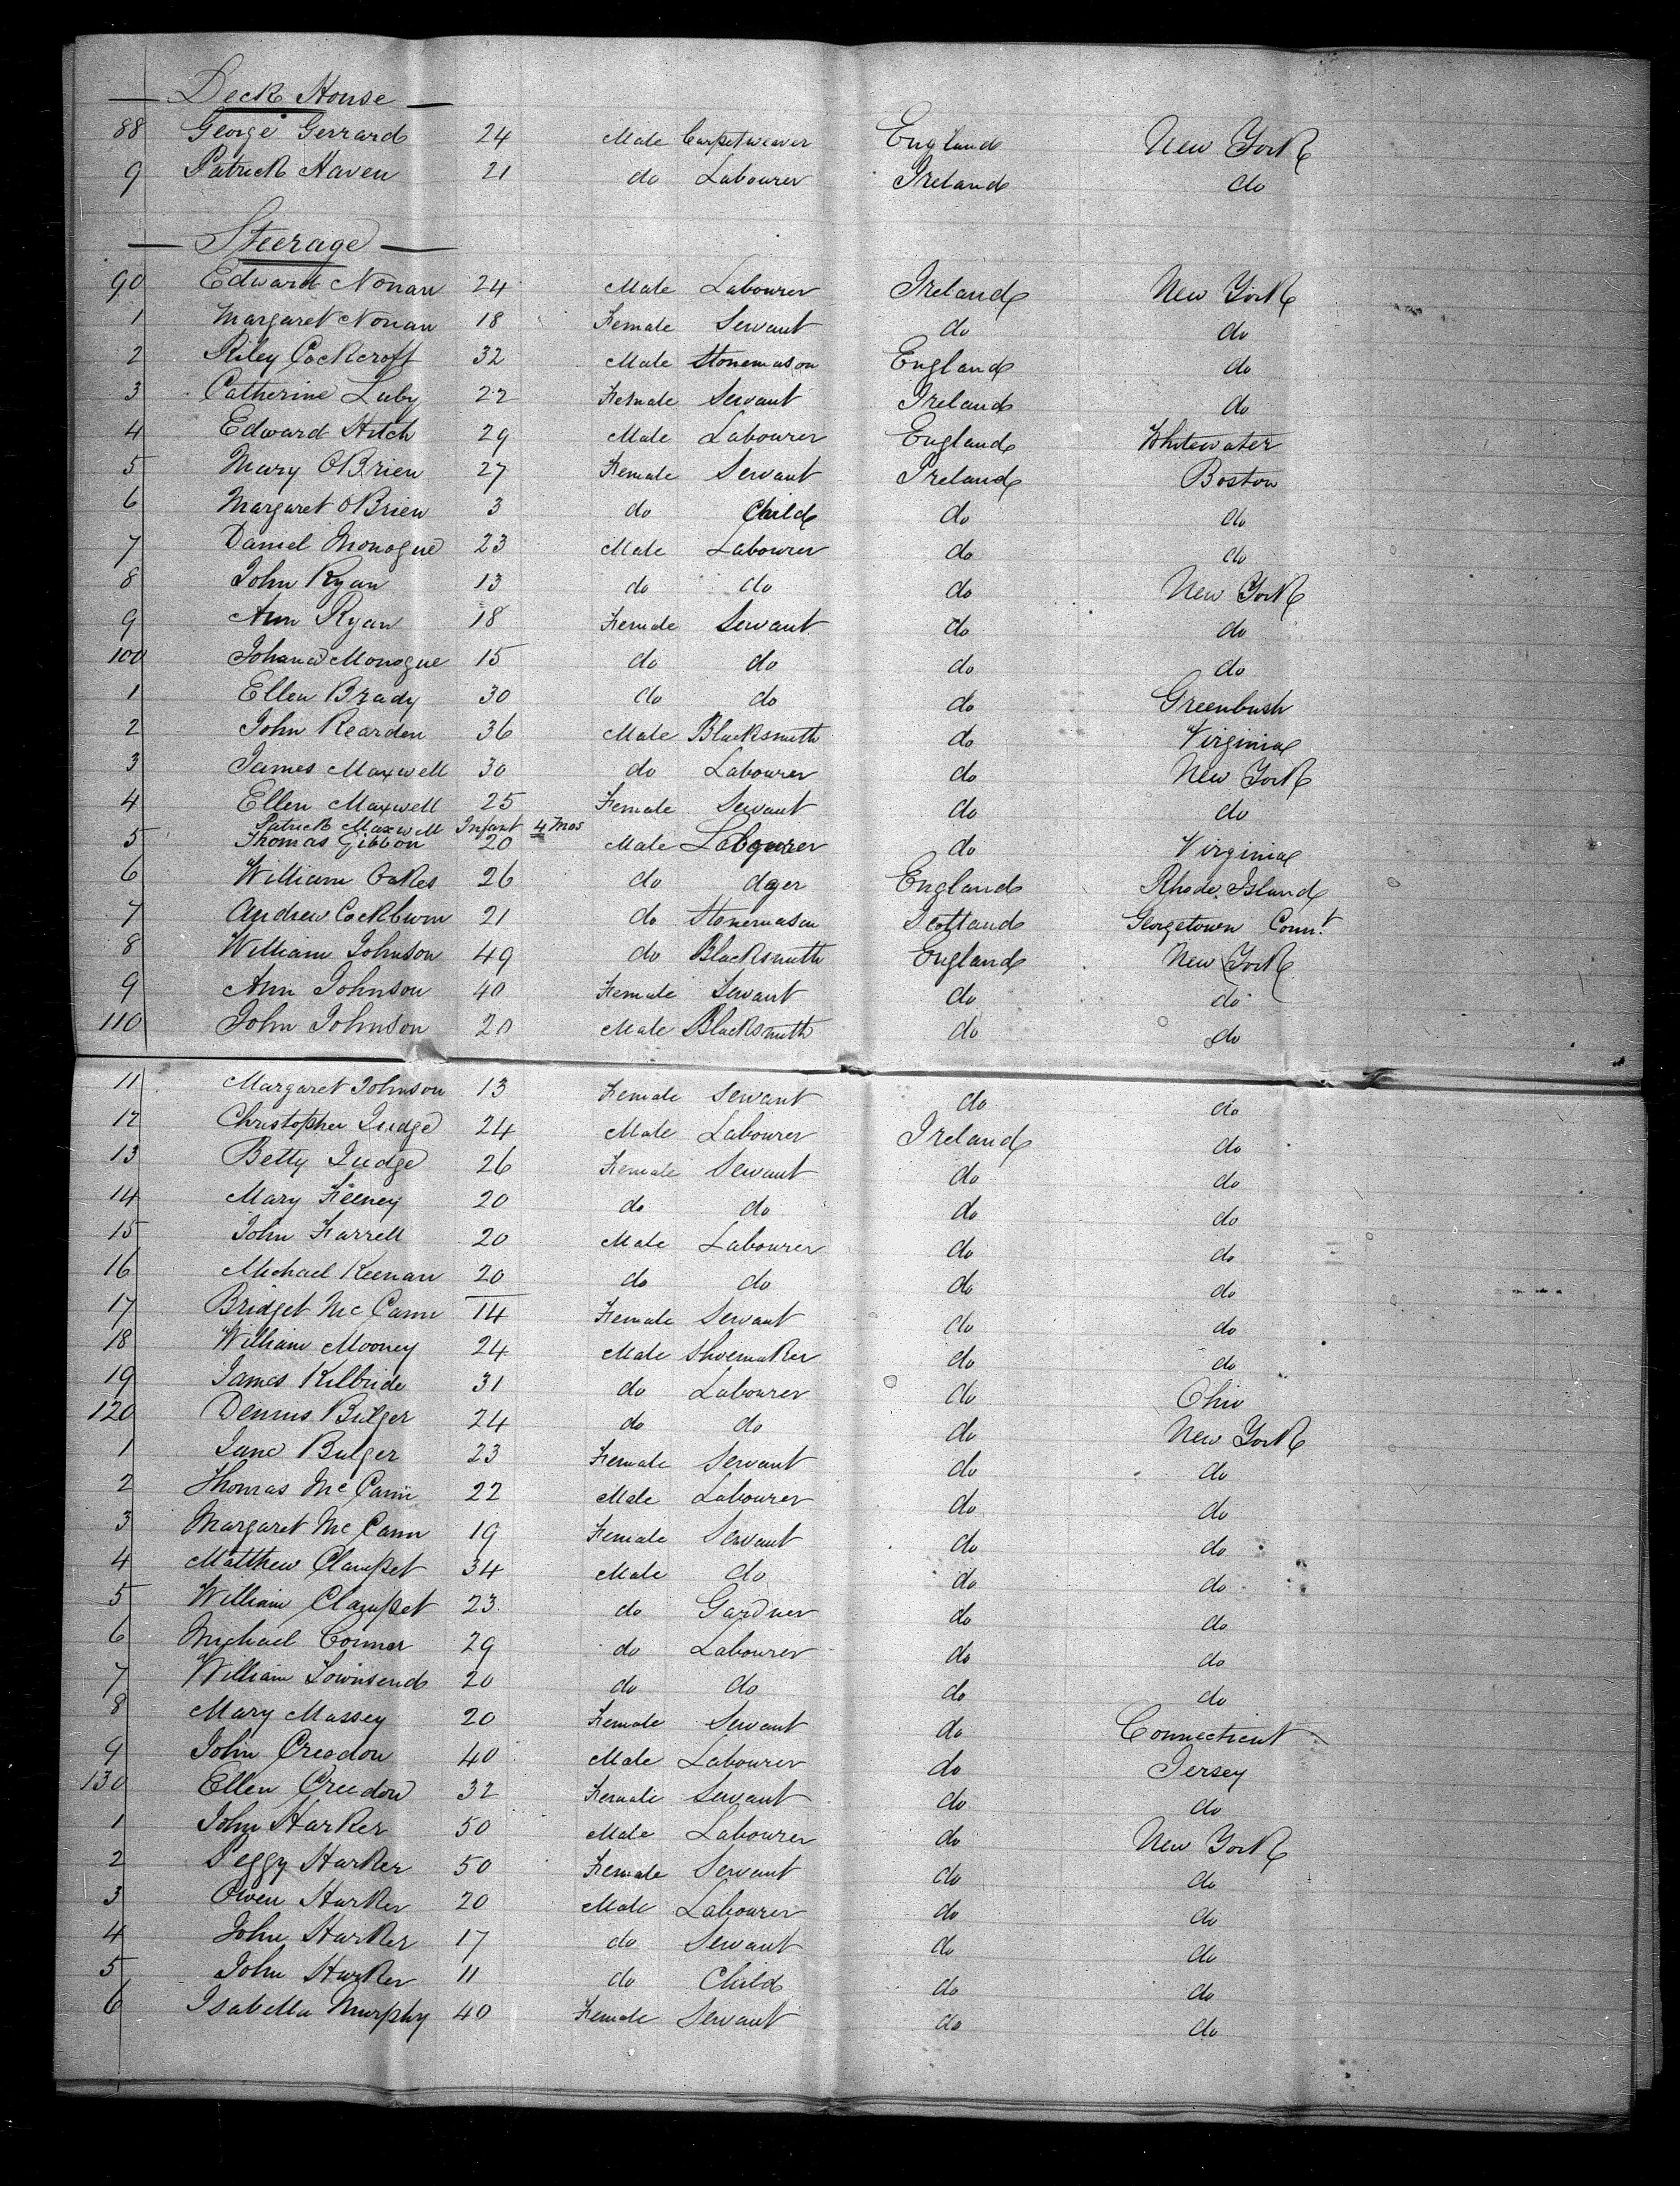 Deck House
88 George Gerrard 24 Male Carpetweaver England New York
9 Patrick Haven 21 do Labourer Ireland do
Steerage
90 Edward Nonan 24 Male Labourer Ireland New York
1 Margaret Nonan 18 Female Servant do do
2 Riley Cockcroft 32 Male Stonemason England do
3 Catherine Luby 22 Female Servant Ireland do
4 Edward Hitch 29 Male Labourer England Whitewater
5 Mary OBrien 27 Female Servant Ireland Boston
6 Margaret OBrien 3 do Child do do
7 Daniel Monogue 23 Male Labourer do do
8 John Ryan 13 do do do New York
9 Ann Ryan 18 Female Servant do do
100 Johana Monogue 15 do do do do
1 Ellen Brady 30 do do do Greenbush
2 John Rearden 36 Male Blacksmith do Virginia
3 James Maxwell 30 do Labourer do New York
4 Ellen Maxwell 25 Female Servant do do
Patrick Maxwell Infant 4 Mos
5 Thomas Gibbon 20 Male Labourer do Virginia
6 William Oakes 26 do England Rhode Island
7 Andrew Cockburn 21 do Stonemason Scotland Georgetown Connt
8 William Johnson 49 do Blacksmith England New York
9 Ann Johnson 40 Female Servant do do
110 John Johnson 20 Male Blacksmith do do
11 Margaret Johnson 13 Female Servant do do
12 Christopher Judge 24 Male Labourer Ireland do
13 Betty Judge 26 Female Servant do do
14 Mary Feeney 20 do do do do
15 John Farrell 20 Male Labourer do do
16 Michael Keenan 20 do do do do
17 Bridget Mc Cann 14 Female Servant do do
18 William Mooney 24 Male Shoemaker do do
19 James Kilbride 31 do Labourer do Ohio
120 Dennis Bulger 24 do do do New York
1 Jane Bulger 23 Female Servant do do
2 Thomas Mc Cann 22 Male Labourer do do
3 Margaret Mc Cann 19 Female Servant do do
4 Matthew Clampet 34 Male do do do
5 William Clampet 23 do Gardner do do
6 Michael Connor 29 do Labourer do do
7 William Townsend 20 do do do do
8 Mary Massey 20 Female Servant do Connecticut
9 John Creedon 40 Male Labourer do Jersey
130 Ellen Creedon 32 Female Servant do do
1 John Harker 50 Male Labourer do New York
2 Peggy Harker 50 Female Servant do do
3 Owen Harker 20 Male Labourer do do
4 John Harker 17 do Servant do do
5 John Harker 11 do Child do do
6 Isabella Murphy 40 Female Servant do do